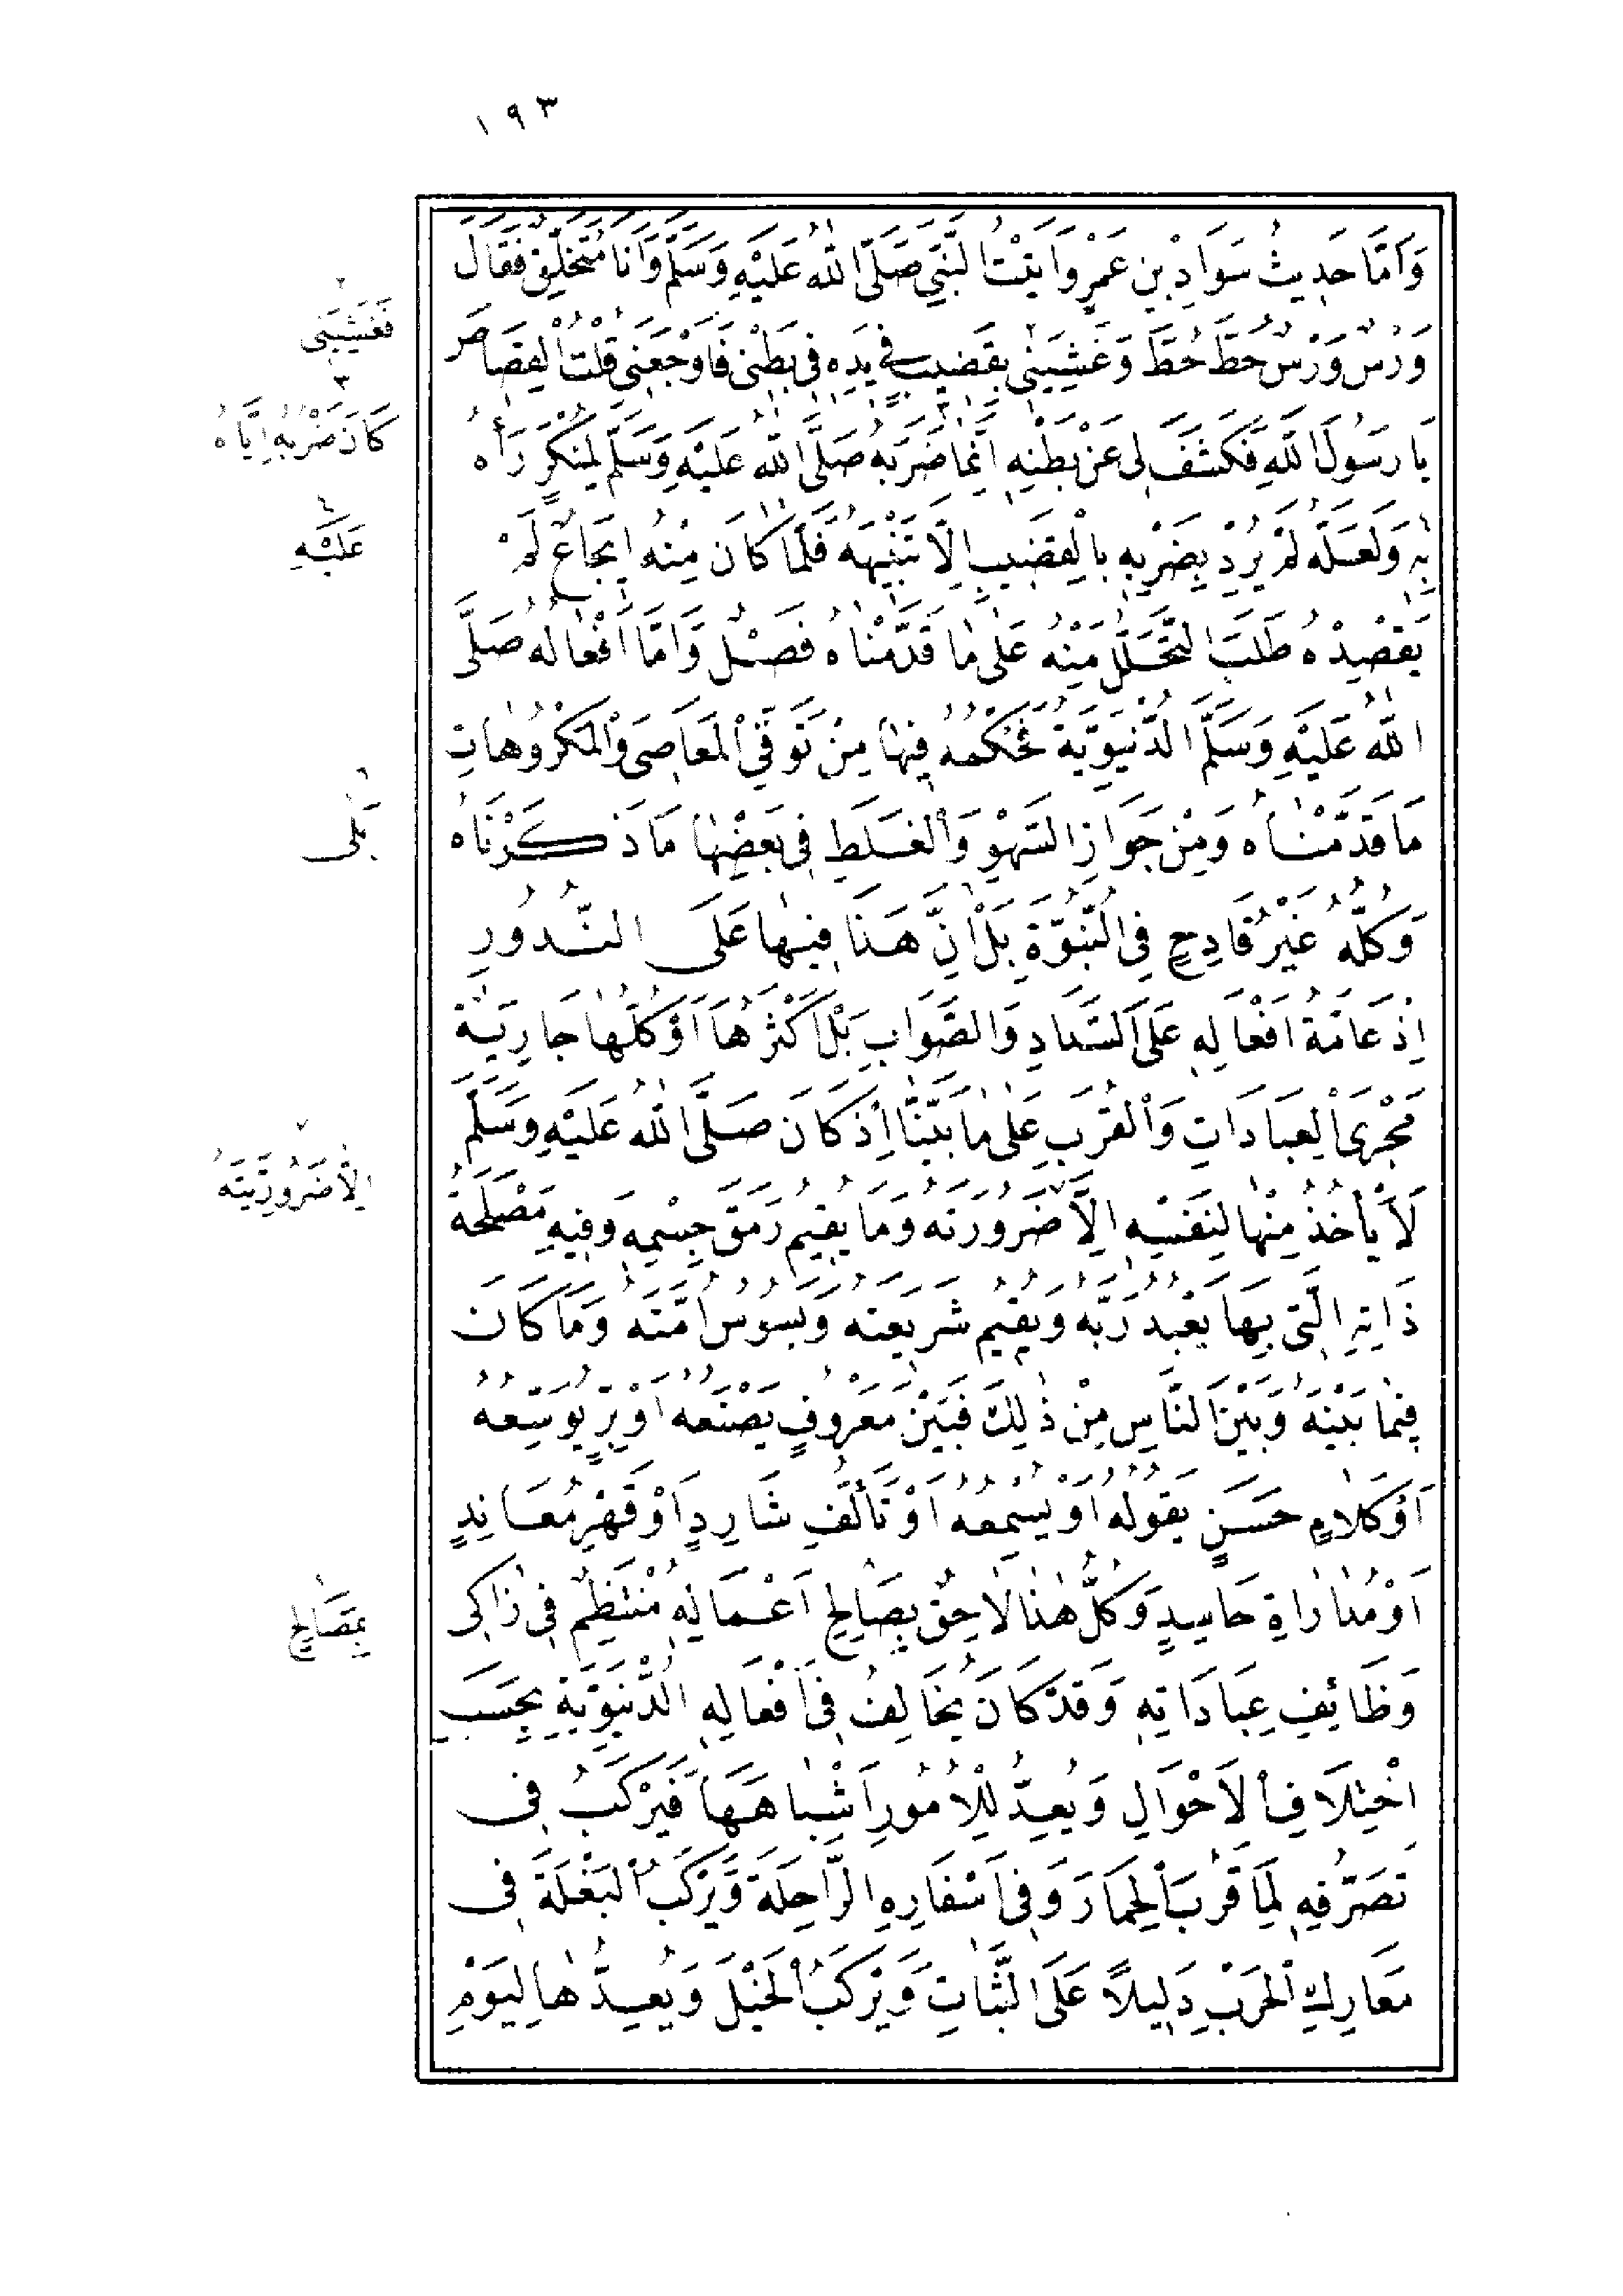 ١٩٣
وَأَمَّا حَدِيثُ سَوَادِ بْنِ عَمْرٍو أَتَيْتُ النَّبِيَّ صَلَّى اللهُ عَلَيْهِ وَسَلَّمَ وَأَنَا مُتَخَلِّقٌ فَقَالَ
وَرْسٌ وَرْسٌ حُطَّ حُطَّ وَغَشِيَنِي بِقَضِيبٍ فِي يَدِهِ فِي بَطْنِي فَأَوْجَعَنِي قُلْتُ الْقِصَاصَ
يَا رَسُولَ اللَّهِ فَكَشَفَ لِي عَنْ بَطْنِهِ إِنَّمَا ضَرَبَهُ صَلَّى اللهُ عَلَيْهِ وَسَلَّمَ لِمُنْكَرٍ رَآهُ
بِهِ وَلَعَلَّهُ لَمْ يُرِدْ بِضَرْبِهِ بِالْقَضِيبِ إِلَّا تَنْبِيهَهُ فَلَمَّا كَانَ مِنْهُ إِيجَاعٌ لَمْ
يَقْصِدْهُ طَلَبَ التَّحَلُّلَ مِنْهُ عَلَى مَا قَدَّمْنَاهُ فَصْلٌ وَأَمَّا أَفْعَالُهُ صَلَّى
اللهُ عَلَيْهِ وَسَلَّمَ الدُّنْيَوِيَّةُ فَحُكْمُهُ فِيهَا مِنْ تَوَقِّي الْمَعَاصِي وَالْمَكْرُوهَاتِ
مَا قَدَّمْنَاهُ وَمِنْ جَوَازِ السَّهْوِ وَالْغَلَطِ فِي بَعْضِهَا مَا ذَكَرْنَاهُ
وَكُلُّهُ غَيْرُ قَادِحٍ فِي النُّبُوَّةِ بَلْ إِنَّ هَذَا فِيهَا عَلَى النُّدُورِ
إِذْ عَامَّةُ أَفْعَالِهِ عَلَى السَّدَادِ وَالصَّوَابِ بَلْ أَكْثَرُهَا أَوْ كُلُّهَا جَارِيَةٌ
مَجْرَى الْعِبَادَاتِ وَالْقُرَبِ عَلَى مَا بَيَّنَّا إِذْ كَانَ صَلَّى اللهُ عَلَيْهِ وَسَلَّمَ
لَا يَأْخُذُ مِنْهَا لِنَفْسِهِ إِلَّا ضَرُورَتَهُ وَمَا يُقِيمُ رَمَقَ جِسْمِهِ وَفِيهِ مَصْلَحَةُ
ذَاتِهِ الَّتِي بِهَا يَعْبُدُ رَبَّهُ وَيُقِيمُ شَرِيعَتَهُ وَيَسُوسُ أُمَّتَهُ وَمَا كَانَ
فِيمَا بَيْنَهُ وَبَيْنَ النَّاسِ مِنْ ذَلِكَ فَبَيْنَ مَعْرُوفٍ يَصْنَعُهُ أَوْ بِرٍّ يُوَسِّعُهُ
أَوْ كَلَامٍ حَسَنٍ يَقُولُهُ أَوْ يُسْمِعُهُ أَوْ تَأَلُّفِ شَارِدٍ أَوْ قَهْرِ مُعَانِدٍ
أَوْ مُدَارَاةِ حَاسِدٍ وَكُلُّ هَذَا لَاحِقٌ بِصَالِحِ أَعْمَالِهِ مُنْتَظِمٌ فِي زَاكِي
وَظَائِفِ عِبَادَاتِهِ وَقَدْ كَانَ يُخَالِفُ فِي أَفْعَالِهِ الدُّنْيَوِيَّةِ بِحَسَبِ
اخْتِلَافِ الْأَحْوَالِ وَيُعِدُّ لِلْأُمُورِ أَشْبَاهَهَا فَيَرْكَبُ فِي
تَصَرُّفِهِ لِمَا قَرُبَ الْحِمَارَ وَفِي أَسْفَارِهِ الرَّاحِلَةَ وَيَرْكَبُ الْبَغْلَةَ فِي
مَعَارِكِ الْحَرْبِ دَلِيلًا عَلَى الثَّبَاتِ وَيَرْكَبُ الْخَيْلَ وَيُعِدُّهَا لِيَوْمِ
٢
فَغَشِيَنِي
٣
كَانَ ضَرْبُهُ إِيَّاهُ
٤
عَلَيْهِ
٦
بَلَى
٧
إِلَّا ضَرُورِيَّتَهُ
٨
بِمَصَالِحِ